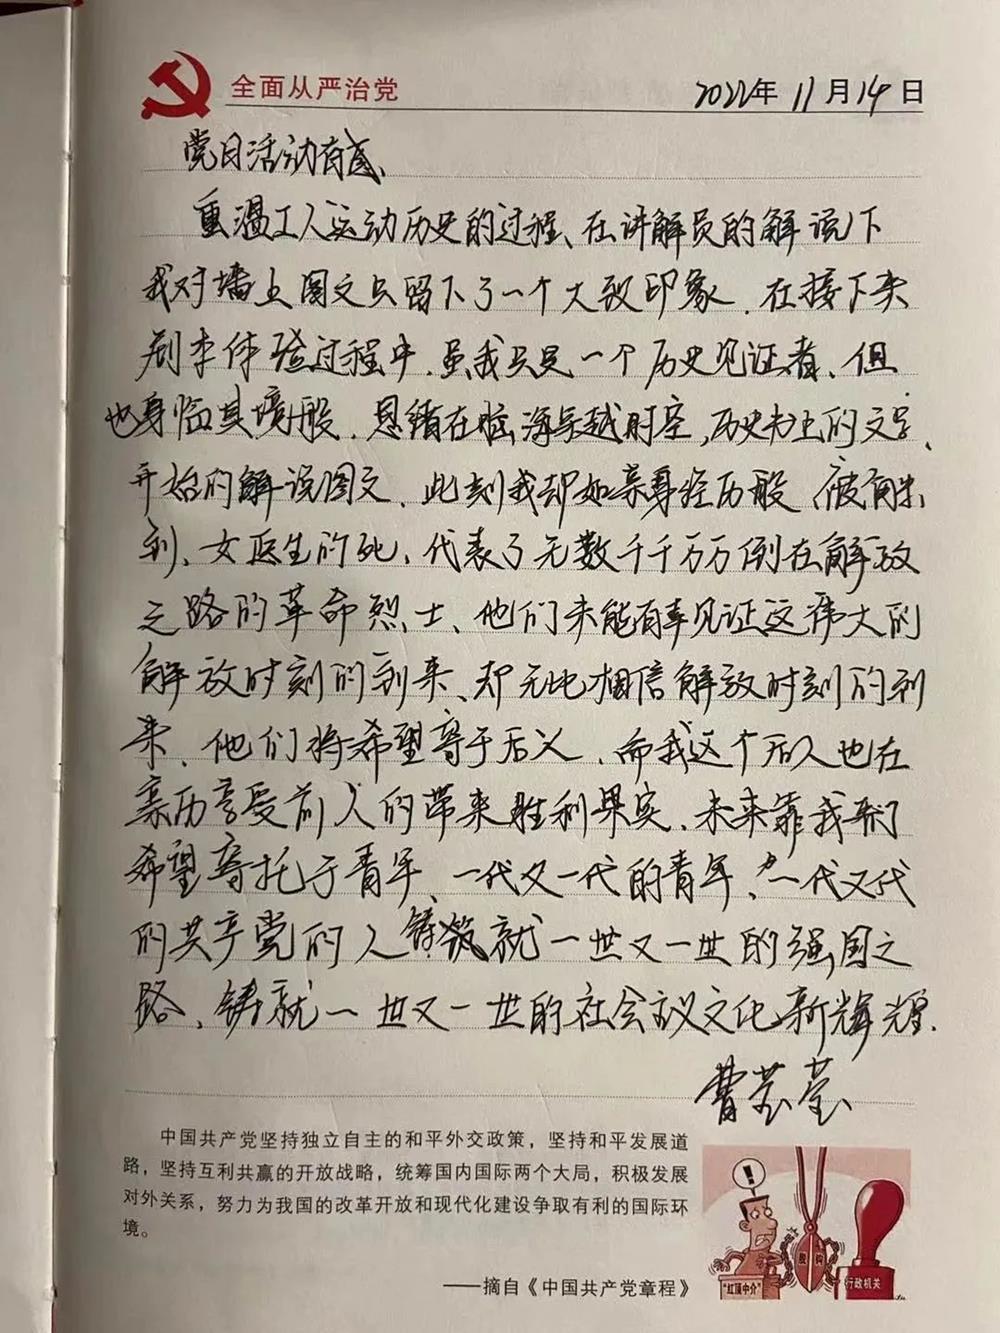 全面从严治党
2022年 11月14日
党日活动有感、
重温工人运动历史的过程、在讲解员的解说下
我对墙上图文只留下了一个大致印象. 在接下来
剧本体验过程中. 虽我只是一个历史见证者、但
也身临其境般. 思绪在脑海穿越时空, 历史书上的文字、
开始的解说图文、此刻我却如亲身经历般、
到、女医生的死、代表了无数千千万万倒在解放
之路的革命烈士、他们未能有幸见证这伟大的
解放时刻的到来、却无比相信解放时刻的到
来、他们将希望寄于后人、而我这个后人也在
亲历享受前人的带来胜利果实、未来靠我们
希望寄托于青年、一代又一代的青年、一代又代
的共产党的人铸就一世又一世的强国之
路、铸就一世又一世的社会主义文化新辉煌.
中国共产党坚持独立自主的和平外交政策，坚持和平发展道
路，坚持互利共赢的开放战略，统筹国内国际两个大局，积极发展
对外关系，努力为我国的改革开放和现代化建设争取有利的国际环
境。
——摘自《中国共产党章程》
!
脱钩
"红顶中介"
行政机关